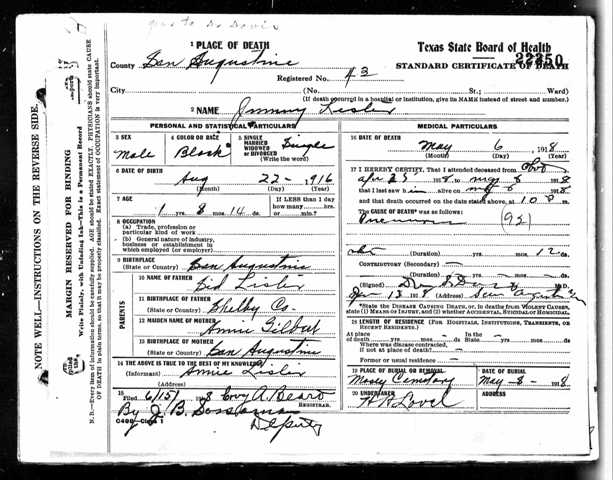 1 PLACE OF DEATH
Texas State Board of Health
22350
STANDARD CERTIFICATE OF DEATH
County San Augustine
Registered No. 43
City (No. St.; Ward)
(If death occurred in a hospital or institution, give its NAME instead of street and number.)
2 NAME Jimmy Lister
PERSONAL AND STATISTICAL PARTICULARS
3 SEX Male
4 COLOR OR RACE Black
5 SINGLE MARRIED WIDOWED or DIVORCED (Write the word) Single
6 DATE OF BIRTH
Aug 22 - 1916
(Month) (Day) (Year)
7 AGE
1 yrs. 8 mos. 14 ds.
If LESS than 1 day how many hrs. or min.?
8 OCCUPATION
(a) Trade, profession or particular kind of work
(b) General nature of industry, business or establishment in which employed (or employer)
9 BIRTHPLACE
(State or Country) San Augustine
PARENTS
10 NAME OF FATHER Sid Lister
11 BIRTHPLACE OF FATHER
(State or Country) Shelby Co.
12 MAIDEN NAME OF MOTHER Annie Gilbut
13 BIRTHPLACE OF MOTHER
(State or Country) San Augustine
14 THE ABOVE IS TRUE TO THE BEST OF MY KNOWLEDGE
(Informant) Annie Lister
(Address)
15 Filed 6/15/ 18
A. Beard
REGISTRAR.
By J. B.
Deputy
MEDICAL PARTICULARS
16 DATE OF DEATH
May 6, 1918
(Month) (Day) (Year)
17 I HEREBY CERTIFY, That I attended deceased from
that I last saw h im alive on 1918
and that death occurred on the date stated above, at 10
The CAUSE OF DEATH* was as follows:
(92)
(Duration) yrs. mos. 12 ds.
CONTRIBUTORY (Secondary)
(Duration) yrs. mos. ds.
(Signed) M.D.
(Address) San Augustine
*State the DISEASE CAUSING DEATH, or, in deaths from VIOLENT CAUSES, state (1) MEANS OF INJURY, and (2) whether ACCIDENTAL, SUICIDAL OR HOMICIDAL.
18 LENGTH OF RESIDENCE (FOR HOSPITALS, INSTITUTIONS, TRANSIENTS, OR RECENT RESIDENTS.)
At place of death yrs. mos. ds. In the State yrs. mos. ds.
Where was disease contracted, if not at place of death?
Former or usual residence
19 PLACE OF BURIAL OR REMOVAL
Cemetery
DATE OF BURIAL
May - 8 - 1918
20 UNDERTAKER
ADDRESS
NOTE WELL—INSTRUCTIONS ON THE REVERSE SIDE.
MARGIN RESERVED FOR BINDING
Write Plainly, with Unfading Ink—This is a Permanent Record
N. B.—Every item of information should be carefully supplied. AGE should be stated EXACTLY. PHYSICIANS should state CAUSE OF DEATH in plain terms, so that it may be properly classified. Exact statement of OCCUPATION is very important.